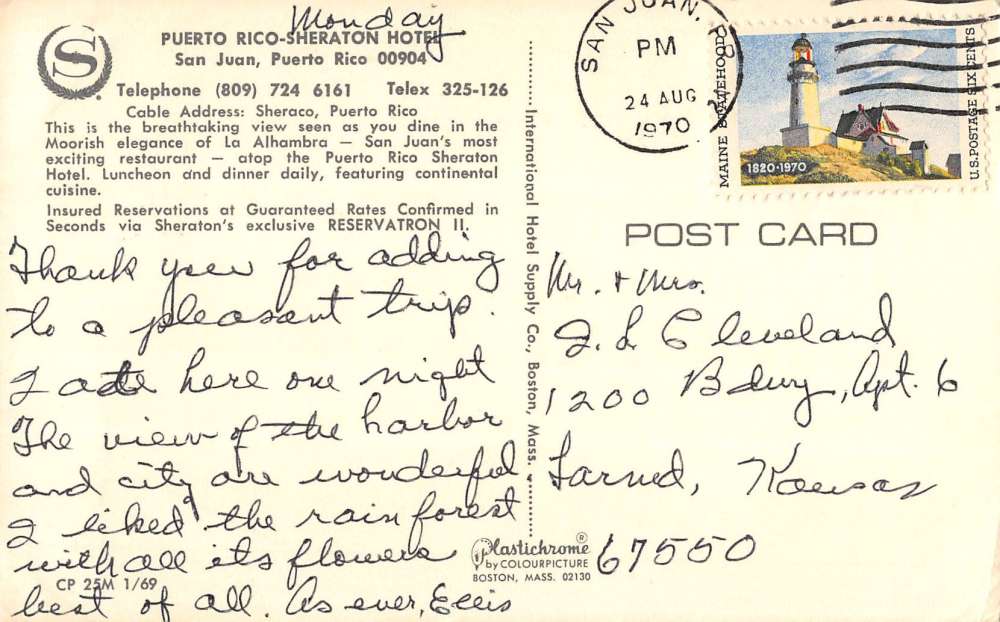 Monday
S
PUERTO RICO-SHERATON HOTEL
San Juan, Puerto Rico 00904
Telephone (809) 724 6161 Telex 325-126
Cable Address: Sheraco, Puerto Rico
This is the breathtaking view seen as you dine in the
Moorish elegance of La Alhambra — San Juan's most
exciting restaurant — atop the Puerto Rico Sheraton
Hotel. Luncheon and dinner daily, featuring continental
cuisine.
Insured Reservations at Guaranteed Rates Confirmed in
Seconds via Sheraton's exclusive RESERVATRON II.
Thank you for adding
to a pleasant trip.
I ate here one night
The view of the harbor
and city are wonderful
I liked the rain forest
with all its flowers
best of all. As ever, Ellis
CP 25M 1/69
International Hotel Supply Co., Boston, Mass.
Plastichrome®
by COLOURPICTURE
BOSTON, MASS. 02130
SAN JUAN, P.R.
PM
24 AUG
1970
MAINE STATEHOOD
1820-1970
U.S. POSTAGE SIX CENTS
POST CARD
Mr. & Mrs.
I. L Cleveland
1200 Bdwy, Apt. 6
Larned, Kansas
67550